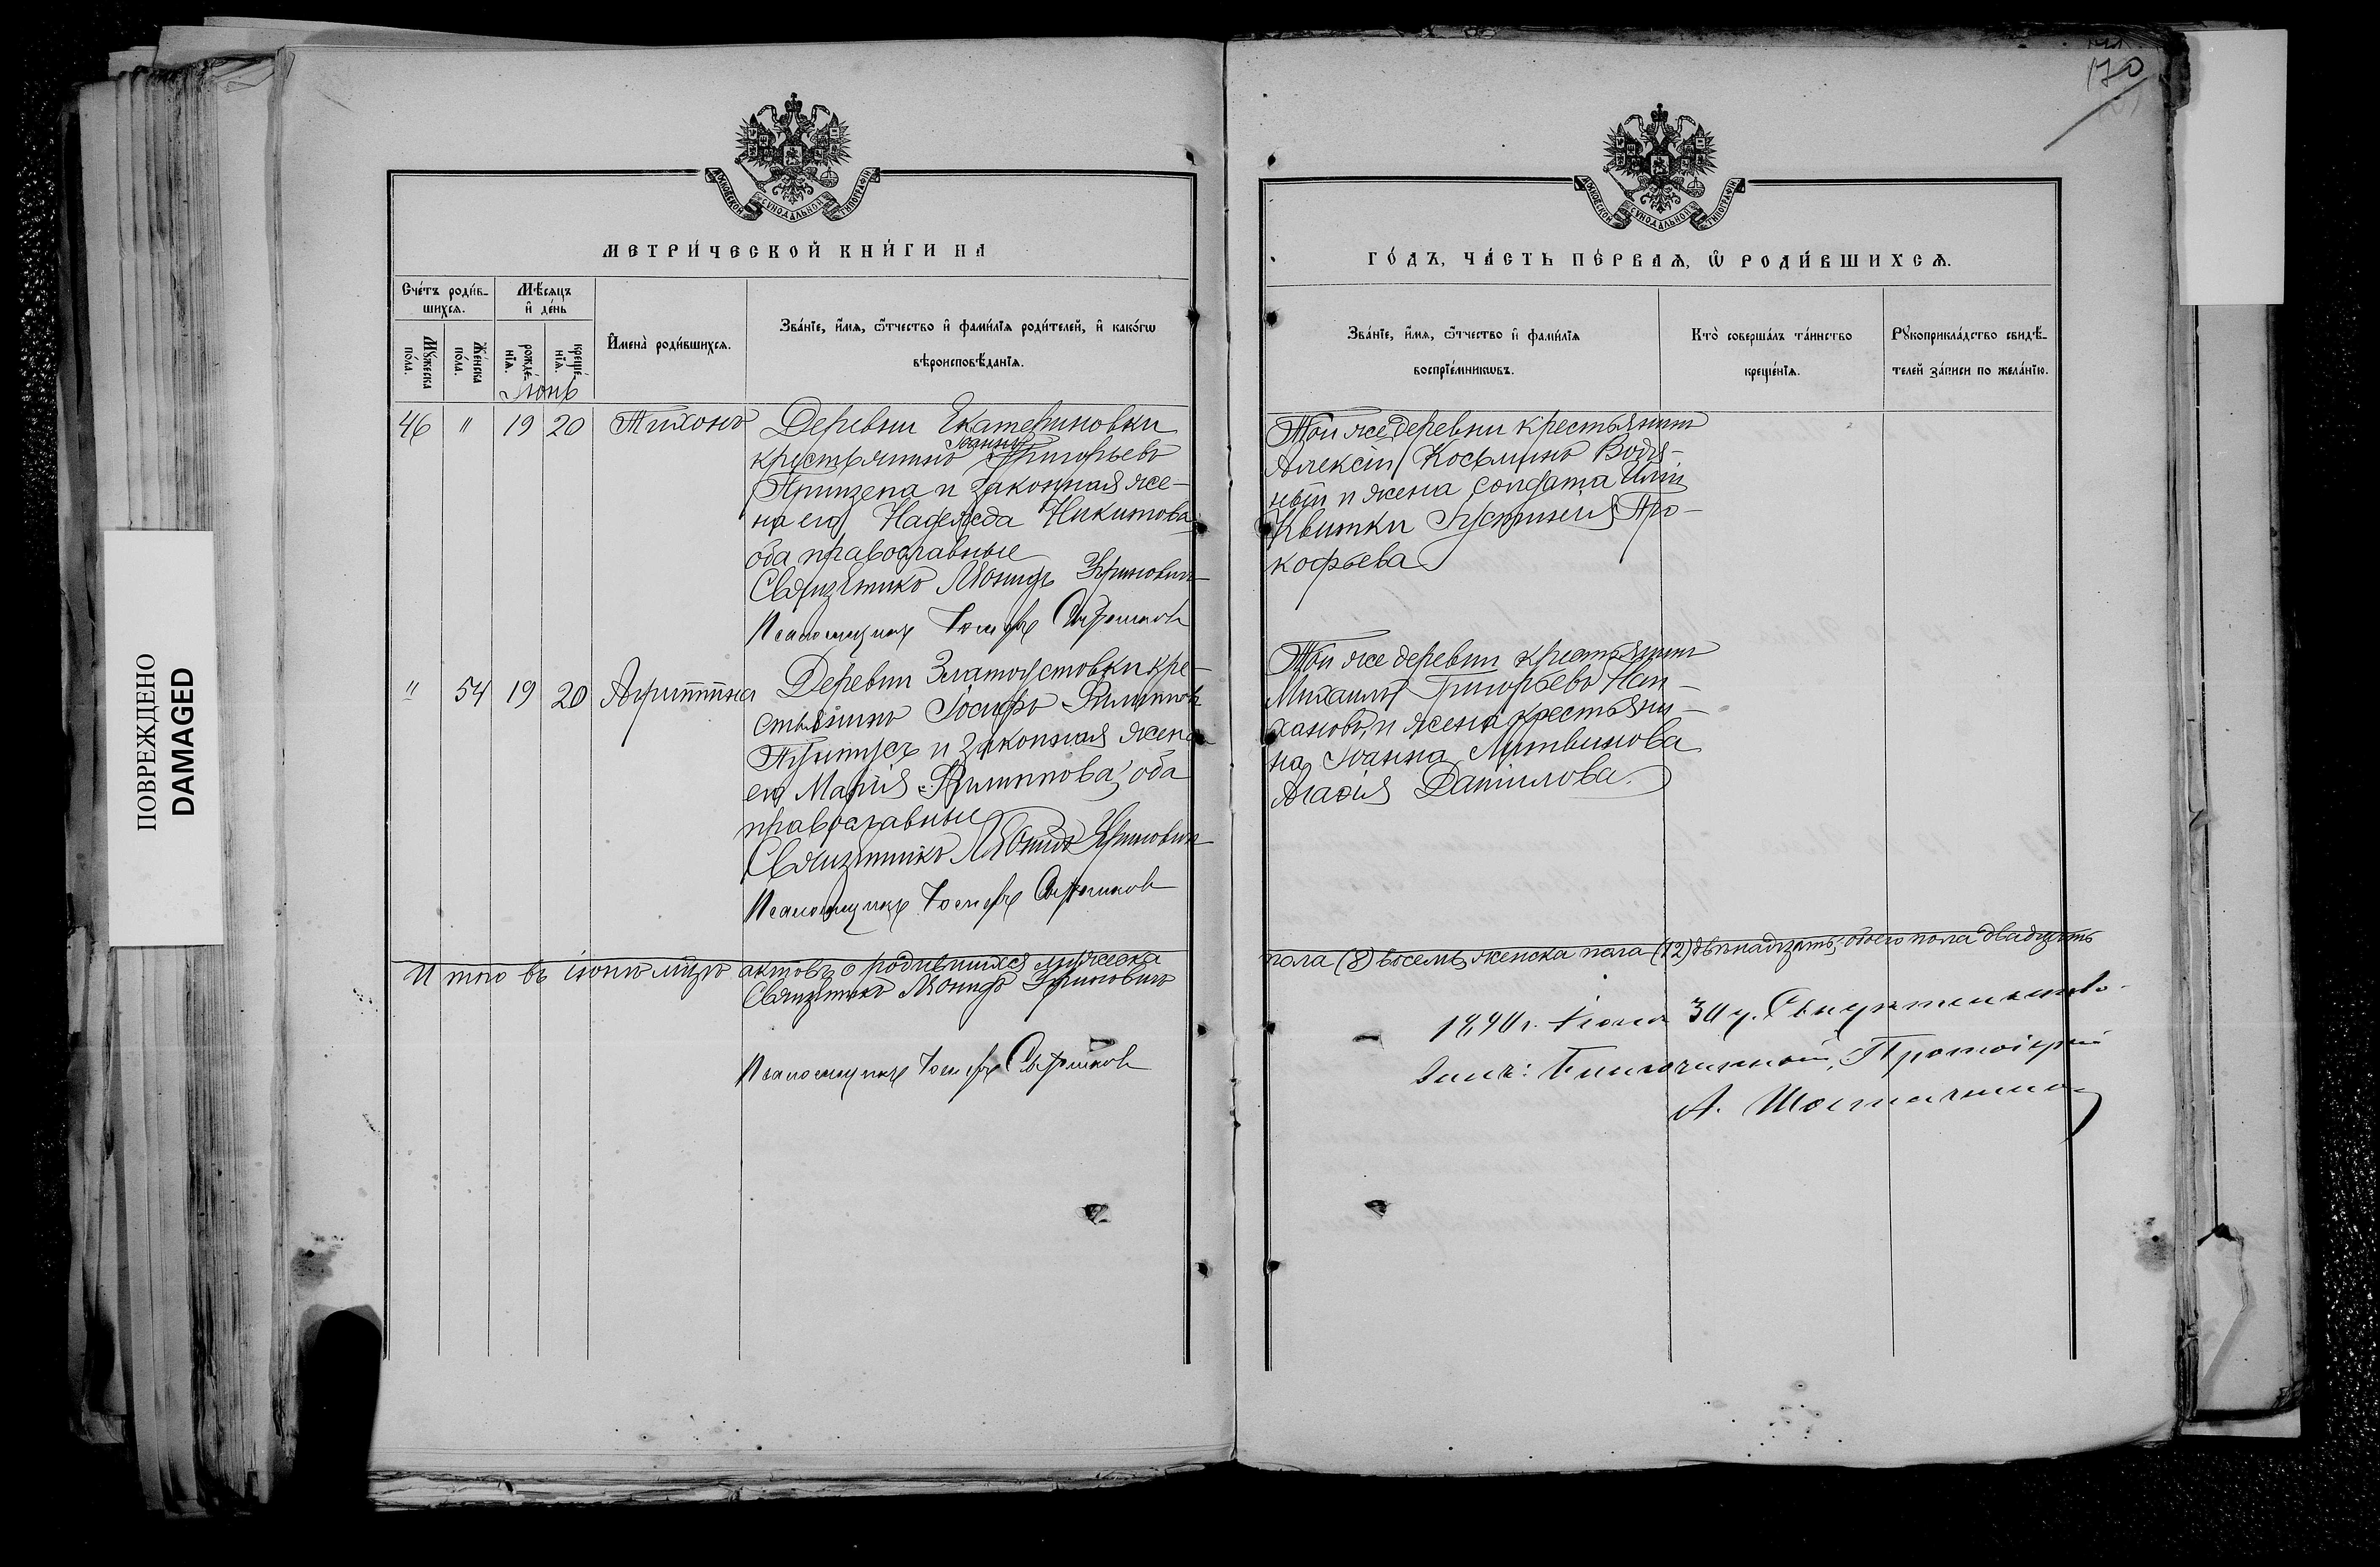 170
ПОВРЕЖДЕНО
DAMAGED
МОСКОВСКОЙ СѴНОДАЛЬНОЙ ТИПОГРАФІИ
МЕТРИ́ЧЕСКОЙ КНИ́ГИ НА
Сче́тъ роди́в-
шихся.
Мѣ́сяцъ
и҆ де́нь
Мꙋ́жеска
по́ла.
Же́нска
по́ла.
рожде́-
нїѧ.
креще́-
нїѧ.
И҆мена̀ роди́вшихсѧ.
Зва́нїе, и҆́мѧ, ѻ҆́тчество и҆ фами́лїѧ роди́телей, и҆ како́гѡ
вѣроисповѣ́данїѧ.
Іюнь
46 " 19 20 Тихонъ Деревни Екатериновки
Іоаннъ
крестьянинъ Григорьевъ
и законная же-
на его Надежда Никитова
оба православные
Священникъ Леонидъ
Псаломщикъ Іосифъ
" 54 19 20 Агриппина Деревни Златоустовки кре-
стьянинъ Іосифъ Филиппов
и законная жена
его Марія Филиппова, оба
православные
Священникъ Леонидъ
Псаломщикъ Іосифъ
Итого въ іюнѣ мцѣ актовъ о родившихся мужеска
Священникъ Леонидъ
Псаломщикъ Іосифъ
МОСКОВСКОЙ СѴНОДАЛЬНОЙ ТИПОГРАФІИ
ГО́ДЪ, ЧА́СТЬ ПЕ́РВАѦ, Ѡ҆ РОДИ́ВШИХСѦ.
Зва́нїе, и҆́мѧ, ѻ҆́тчество и҆ фами́лїѧ
воспрїе́мникѡвъ.
Кто̀ соверша́лъ та́инство
креще́нїѧ.
Рꙋкоприкла́дство свидѣ́-
телей за́писи по жела́нїю.
Той же деревни крестьянинъ
Алексій Косьминъ Водя-
ный и жена солдата Иліи
Квитки Іустинія Про-
кофьева
Той же деревни крестьянинъ
Михаилъ Григорьевъ
и жена крестьяни-
на Іоанна Литвинова
Агафія Данилова.
пола (8) восемь, женска пола (12) двѣнадцать, обоего пола двадцать
1890 г. Іюня 30 д. Свидѣтельство-
валъ: Благочинный, Протоіерей
А.